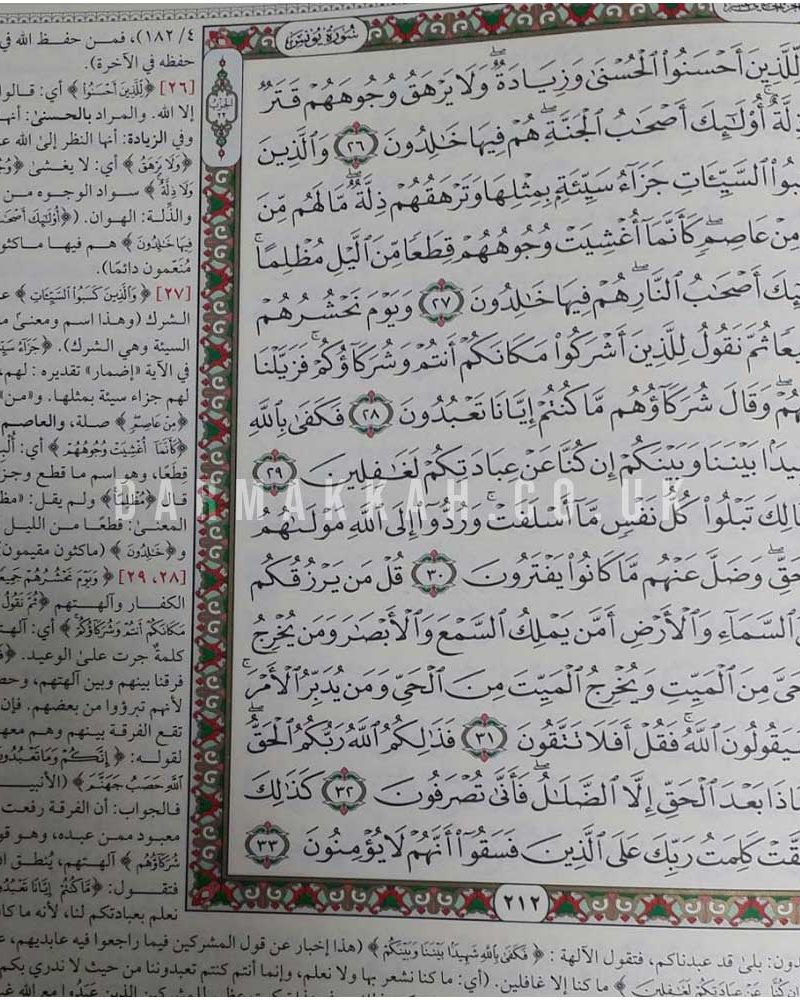 سُورَةُ يُونُسَ
لِّلَّذِينَ أَحْسَنُوا۟ ٱلْحُسْنَىٰ وَزِيَادَةٌ ۖ وَلَا يَرْهَقُ وُجُوهَهُمْ قَتَرٌ
ذِلَّةٌ ۚ أُو۟لَٰٓئِكَ أَصْحَٰبُ ٱلْجَنَّةِ ۖ هُمْ فِيهَا خَٰلِدُونَ ٢٦ وَٱلَّذِينَ
ٱلسَّيِّـَٔاتِ جَزَآءُ سَيِّئَةٍۭ بِمِثْلِهَا وَتَرْهَقُهُمْ ذِلَّةٌ ۖ مَّا لَهُم مِّنَ
مِنْ عَاصِمٍ ۖ كَأَنَّمَآ أُغْشِيَتْ وُجُوهُهُمْ قِطَعًا مِّنَ ٱلَّيْلِ مُظْلِمًا ۚ
أَصْحَٰبُ ٱلنَّارِ ۖ هُمْ فِيهَا خَٰلِدُونَ ٢٧ وَيَوْمَ نَحْشُرُهُمْ
ثُمَّ نَقُولُ لِلَّذِينَ أَشْرَكُوا۟ مَكَانَكُمْ أَنتُمْ وَشُرَكَآؤُكُمْ ۚ فَزَيَّلْنَا
وَقَالَ شُرَكَآؤُهُم مَّا كُنتُمْ إِيَّانَا تَعْبُدُونَ ٢٨ فَكَفَىٰ بِٱللَّهِ
بَيْنَنَا وَبَيْنَكُمْ إِن كُنَّا عَنْ عِبَادَتِكُمْ لَغَٰفِلِينَ ٢٩
تَبْلُوا۟ كُلُّ نَفْسٍ مَّآ أَسْلَفَتْ ۚ وَرُدُّوٓا۟ إِلَى ٱللَّهِ مَوْلَىٰهُمُ
وَضَلَّ عَنْهُم مَّا كَانُوا۟ يَفْتَرُونَ ٣٠ قُلْ مَن يَرْزُقُكُم
ٱلسَّمَآءِ وَٱلْأَرْضِ أَمَّن يَمْلِكُ ٱلسَّمْعَ وَٱلْأَبْصَٰرَ وَمَن يُخْرِجُ
مِنَ ٱلْمَيِّتِ وَيُخْرِجُ ٱلْمَيِّتَ مِنَ ٱلْحَىِّ وَمَن يُدَبِّرُ ٱلْأَمْرَ ۚ
فَسَيَقُولُونَ ٱللَّهُ ۚ فَقُلْ أَفَلَا تَتَّقُونَ ٣١ فَذَٰلِكُمُ ٱللَّهُ رَبُّكُمُ ٱلْحَقُّ ۖ
بَعْدَ ٱلْحَقِّ إِلَّا ٱلضَّلَٰلُ ۖ فَأَنَّىٰ تُصْرَفُونَ ٣٢ كَذَٰلِكَ
كَلِمَتُ رَبِّكَ عَلَى ٱلَّذِينَ فَسَقُوٓا۟ أَنَّهُمْ لَا يُؤْمِنُونَ ٣٣
٢١٢
٤/ ١٨٢)، فمن حفظ الله في
حفظه في الآخرة).
[٢٦] ﴿لِّلَّذِينَ أَحْسَنُوا۟﴾ أي: قالوا
إلا الله. والمراد بالحسنى: أنها
وفي الزيادة: أنها النظر إلى الله
﴿وَلَا يَرْهَقُ﴾ أي: لا يغشىٰ
وَلَا ذِلَّةٌ﴾ سواد الوجوه من
والذِّلة: الهوان. (﴿أُو۟لَٰٓئِكَ
فِيهَا خَٰلِدُونَ﴾ هم فيها ماكثون
مُنَعَّمون دائمًا).
[٢٧] ﴿وَٱلَّذِينَ كَسَبُوا۟ ٱلسَّيِّـَٔاتِ﴾
الشرك (وهذا اسم ومعنىٰ
السيئة وهي الشرك). ﴿جَزَآءُ
في الآية «إضمار» تقديره: لهم،
لهم جزاء سيئة بمثلها. و«من»
﴿مِنْ عَاصِمٍ﴾ صلة، والعاصم
﴿كَأَنَّمَآ أُغْشِيَتْ وُجُوهُهُمْ﴾ أي:
قطعًا، وهو اسم ما قطع
قال ﴿مُظْلِمًا﴾ ولم يقل:
المعنىٰ: قطعًا من الليل
و﴿خَٰلِدُونَ﴾ (ماكثون مقيمون)
[٢٨، ٢٩] ﴿وَيَوْمَ نَحْشُرُهُمْ
الكفار وآلهتهم ﴿ثُمَّ نَقُولُ
مَكَانَكُمْ أَنتُمْ وَشُرَكَآؤُكُمْ﴾ أي:
كلمةٌ جرت علىٰ الوعيد.
فرقنا بينهم وبين آلهتهم،
لأنهم تبرؤوا من بعضهم. فإن
تقع الفرقة بينهم وهم
لقوله: ﴿إِنَّكُمْ وَمَا تَعْبُدُونَ
ٱللَّهِ حَصَبُ جَهَنَّمَ﴾
فالجواب: أن الفرقة رفعت
معبود ممن عبده، وهو
شُرَكَآؤُهُم﴾ آلهتهم، يُنطق
فتقول: ﴿مَّا كُنتُمْ إِيَّانَا تَعْبُدُونَ
نعلم بعبادتكم لنا، لأنه ما
بلىٰ قد عبدناكم، فتقول الآلهة: ﴿فَكَفَىٰ بِٱللَّهِ شَهِيدًۢا بَيْنَنَا وَبَيْنَكُمْ﴾ (هذا إخبار عن قول المشركين فيما راجعوا فيه عابديهم،
كُنَّا عَنْ عِبَادَتِكُمْ لَغَٰفِلِينَ﴾ ما كنا إلا غافلين. (أي: ما كنا نشعر بها ولا نعلم، وإنما أنتم كنتم تعبدوننا من حيث لا ندري بكم
DARMAKKAH.CO.UK